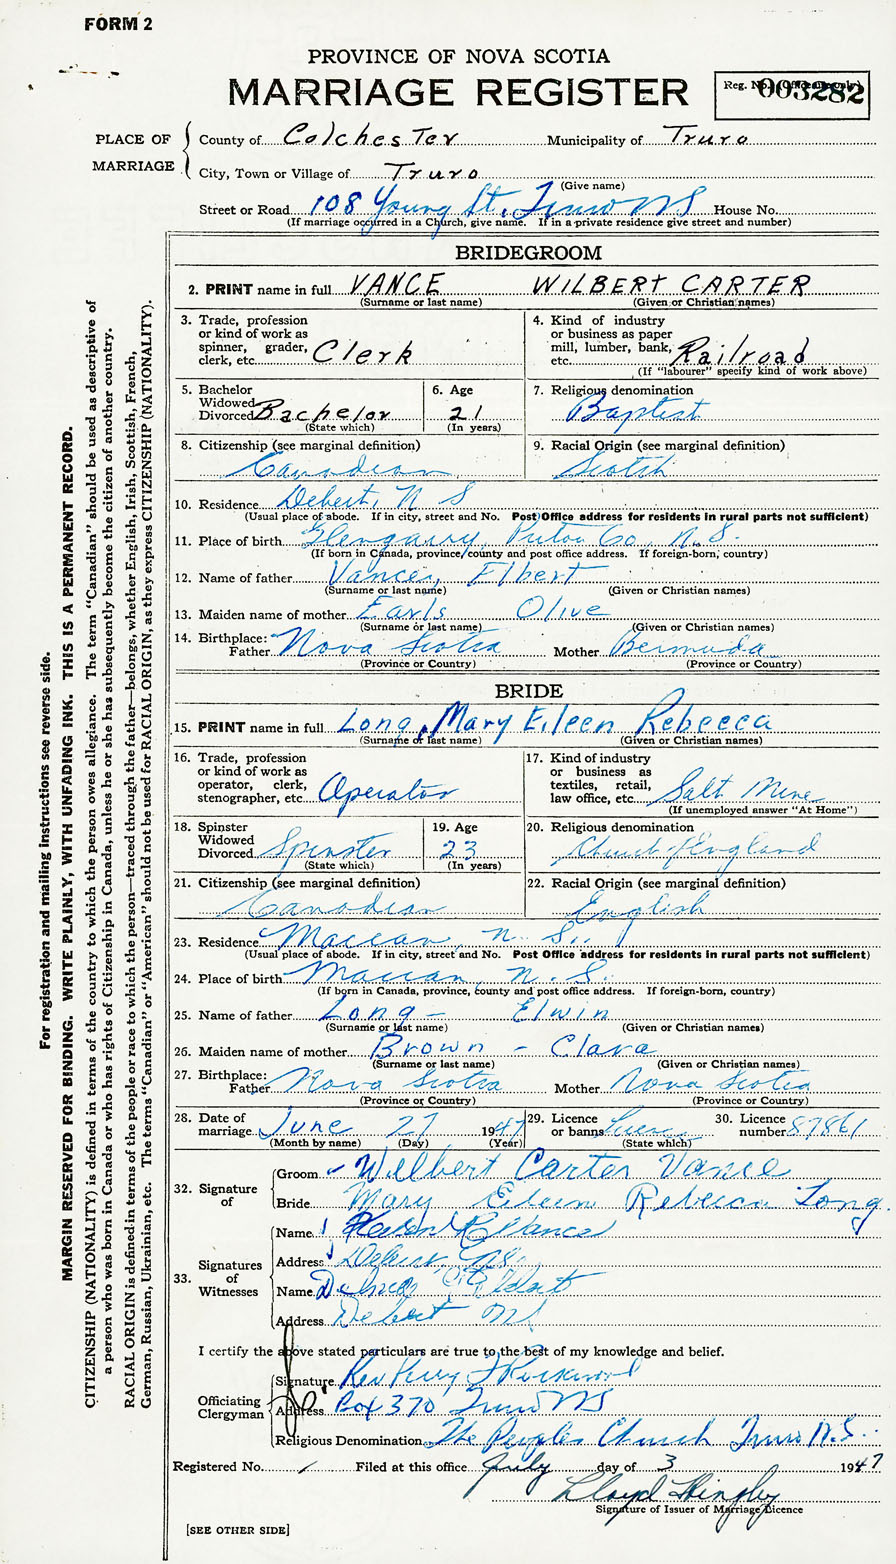 FORM 2
PROVINCE OF NOVA SCOTIA
MARRIAGE REGISTER
Reg. No. (Office use only)
003282
PLACE OF MARRIAGE
County of Colchester Municipality of Truro
City, Town or Village of Truro
(Give name)
Street or Road 108 Young St., Truro NS House No.
(If marriage occurred in a Church, give name. If in a private residence give street and number)
BRIDEGROOM
2. PRINT name in full VANCE WILBERT CARTER
(Surname or last name) (Given or Christian names)
3. Trade, profession or kind of work as spinner, grader, clerk, etc. Clerk
4. Kind of industry or business as paper mill, lumber, bank, etc. Railroad
(If "labourer" specify kind of work above)
5. Bachelor Widowed Divorced Bachelor
(State which)
6. Age 21
(In years)
7. Religious denomination
Baptist
8. Citizenship (see marginal definition)
Canadian
9. Racial Origin (see marginal definition)
Scotch
10. Residence Debert, N S
(Usual place of abode. If in city, street and No. Post Office address for residents in rural parts not sufficient)
11. Place of birth Glengarry, Pictou Co. N.S.
(If born in Canada, province, county and post office address. If foreign-born, country)
12. Name of father Vance, Elbert
(Surname or last name) (Given or Christian names)
13. Maiden name of mother Earls Olive
(Surname or last name) (Given or Christian names)
14. Birthplace:
Father Nova Scotia Mother Bermuda
(Province or Country) (Province or Country)
BRIDE
15. PRINT name in full Long, Mary Eileen Rebecca
(Surname or last name) (Given or Christian names)
16. Trade, profession or kind of work as operator, clerk, stenographer, etc Operator
17. Kind of industry or business as textiles, retail, law office, etc. Salt Mine
(If unemployed answer "At Home")
18. Spinster Widowed Divorced Spinster
(State which)
19. Age 23
(In years)
20. Religious denomination
Church of England
21. Citizenship (see marginal definition)
Canadian
22. Racial Origin (see marginal definition)
English
23. Residence Maccan, N. S.
(Usual place of abode. If in city, street and No. Post Office address for residents in rural parts not sufficient)
24. Place of birth Maccan, N. S.
(If born in Canada, province, county and post office address. If foreign-born, country)
25. Name of father Long - Elwin
(Surname or last name) (Given or Christian names)
26. Maiden name of mother Brown - Clara
(Surname or last name) (Given or Christian names)
27. Birthplace:
Father Nova Scotia Mother Nova Scotia
(Province or Country) (Province or Country)
28. Date of marriage June 27 1947
(Month by name) (Day) (Year)
29. Licence or banns License
(State which)
30. Licence number 87861
32. Signature of
Groom Wilbert Carter Vance
Bride Mary Eileen Rebecca Long.
33. Signatures of Witnesses
Name Vance
Address Debert, NS.
Name
Address Debert NS
I certify the above stated particulars are true to the best of my knowledge and belief.
Officiating Clergyman
Signature Rev Perry F Rockwood
Address Box 370 Truro NS
Religious Denomination The Peoples Church Truro N.S.
Registered No. 1 Filed at this office July day of 3 1947
Lloyd
Signature of Issuer of Marriage Licence
[SEE OTHER SIDE]
For registration and mailing instructions see reverse side.
MARGIN RESERVED FOR BINDING. WRITE PLAINLY, WITH UNFADING INK. THIS IS A PERMANENT RECORD.
CITIZENSHIP (NATIONALITY) is defined in terms of the country to which the person owes allegiance. The term "Canadian" should be used as descriptive of
a person who was born in Canada or who has rights of Citizenship in Canada, unless he or she has subsequently become the citizen of another country.
RACIAL ORIGIN is defined in terms of the people or race to which the person—traced through the father—belongs, whether English, Irish, Scottish, French,
German, Russian, Ukrainian, etc. The terms "Canadian" or "American" should not be used for RACIAL ORIGIN, as they express CITIZENSHIP (NATIONALITY).